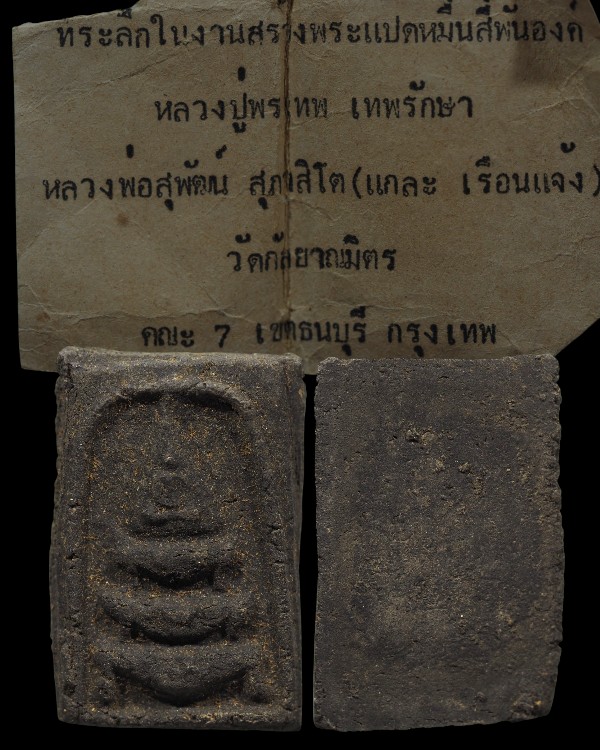 ที่ระลึกในงานสร้างพระแปดหมื่นสี่พันองค์
หลวงปู่พรเทพ เทพรักษา
หลวงพ่อสุพัฒน์ สุภาสิโต(แกละ เรือนแจ้ง)
วัดกัลยาณมิตร
คณะ 7 เขตธนบุรี กรุงเทพ